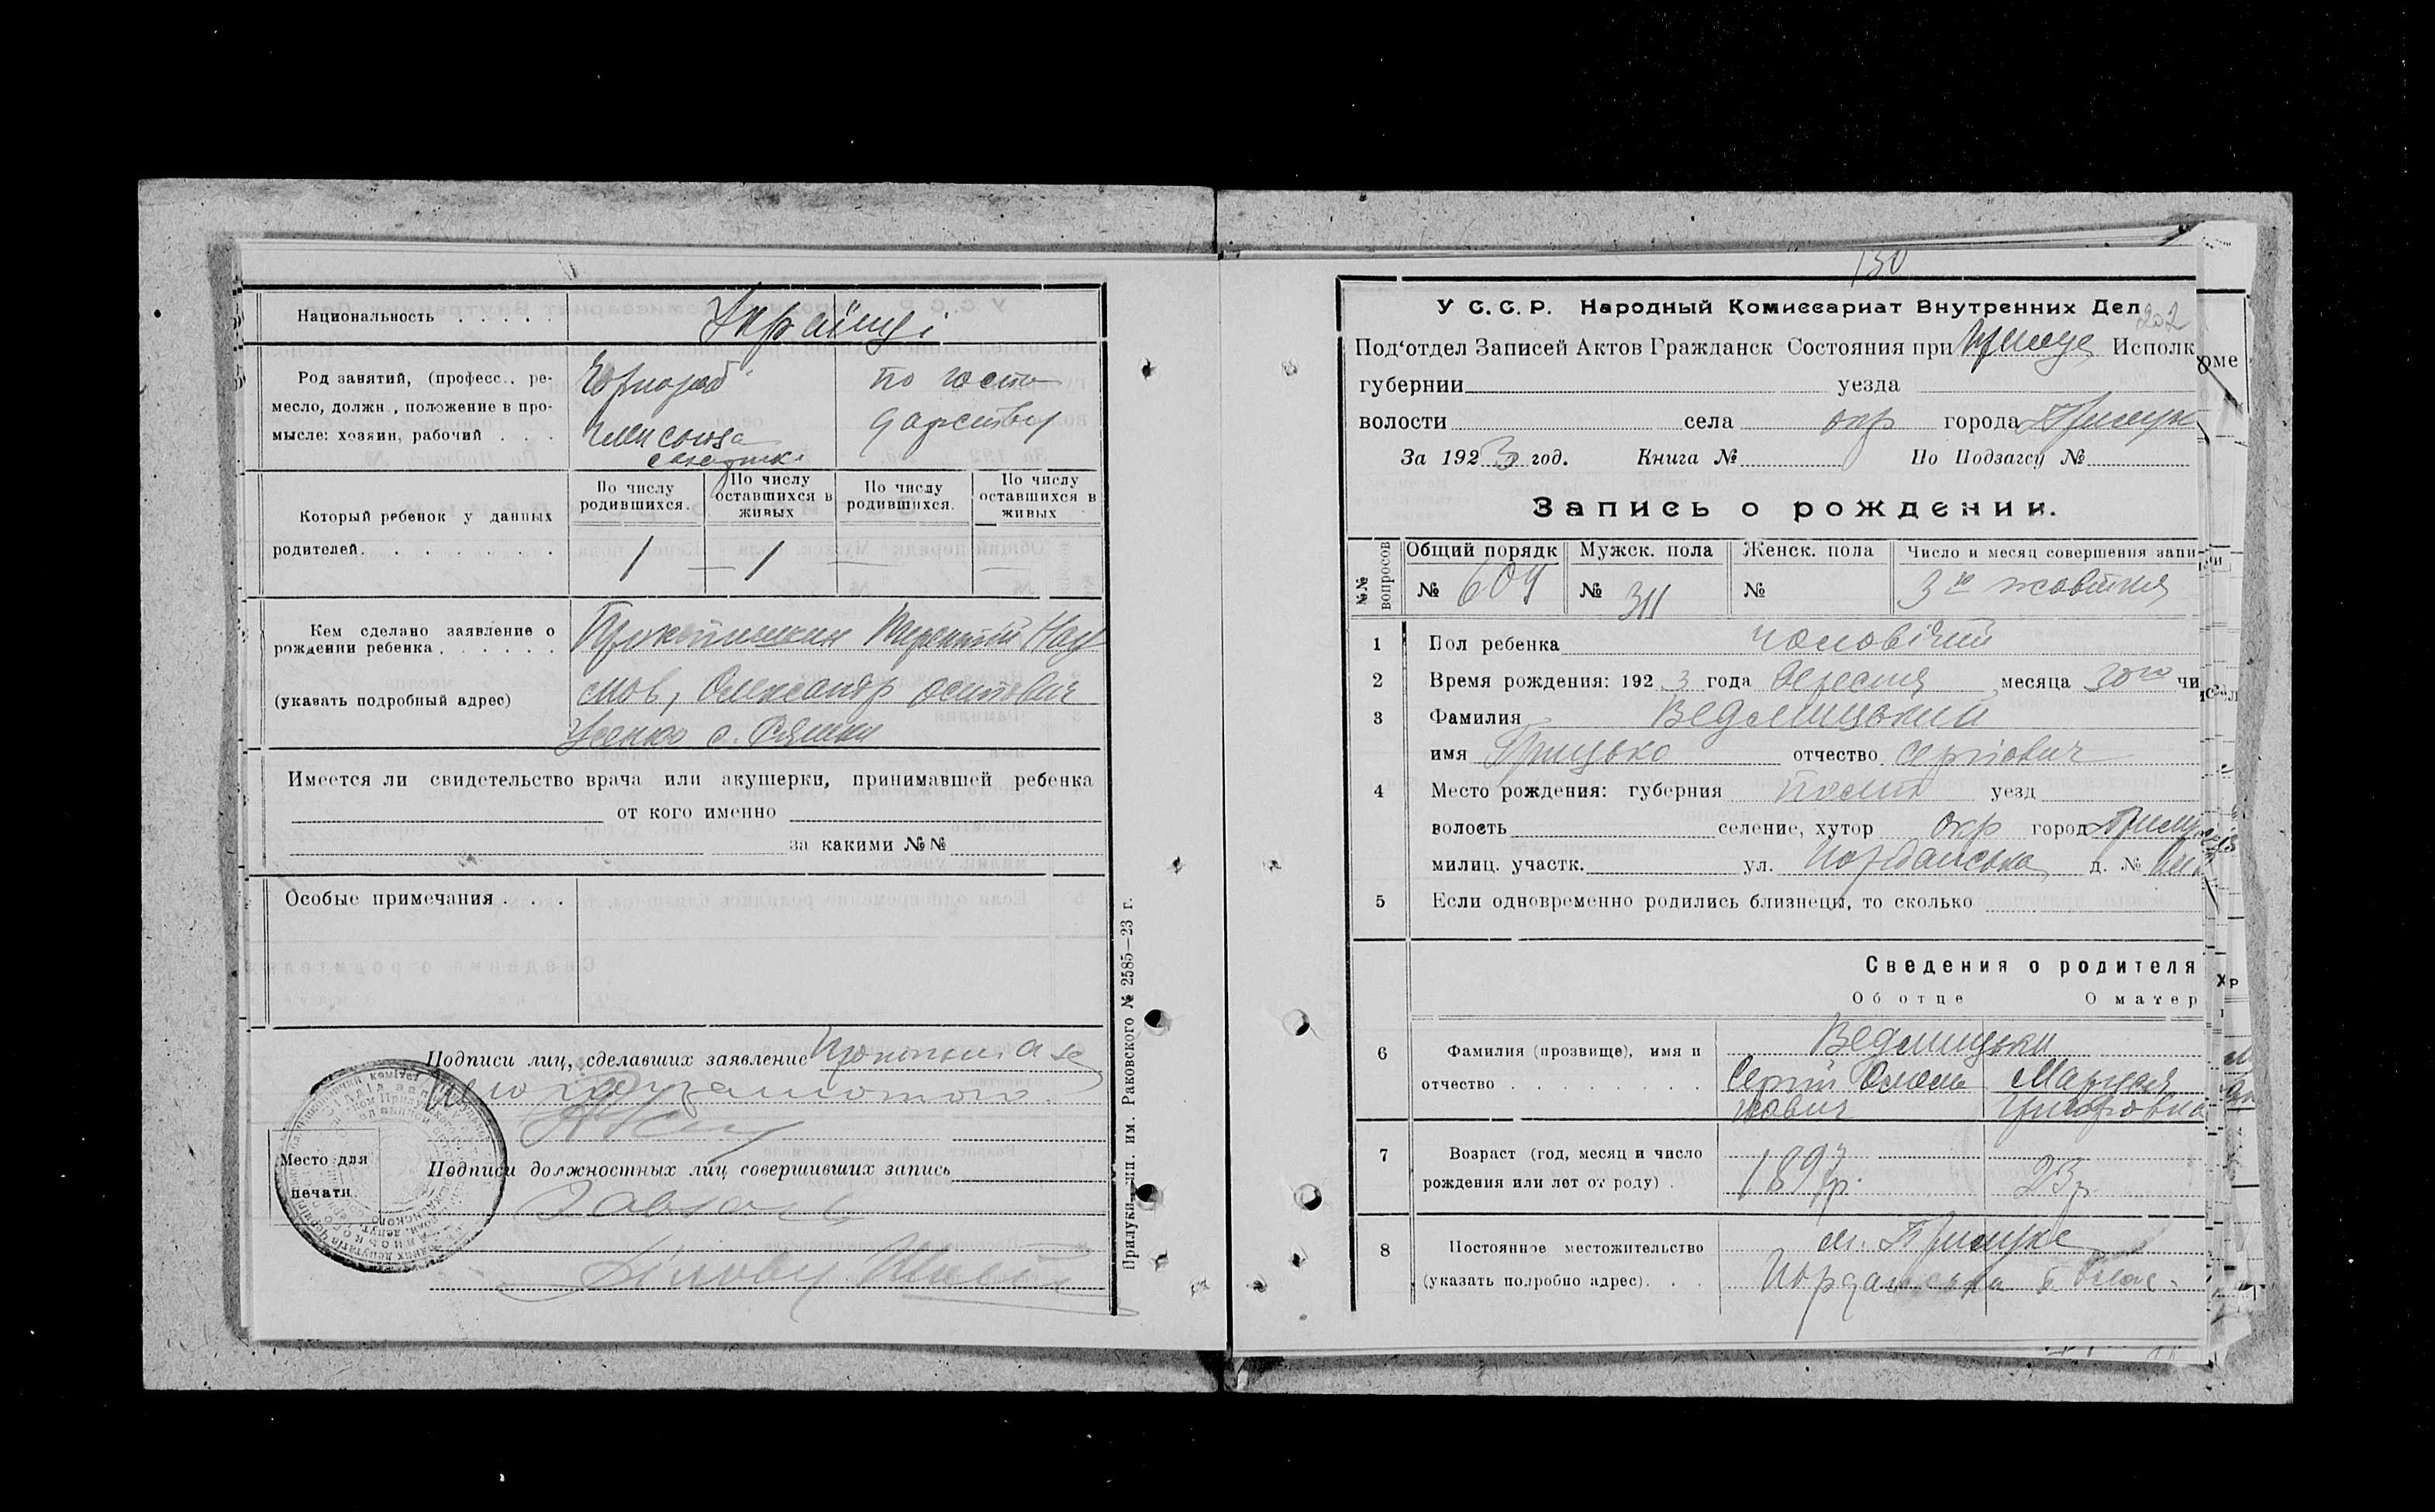 Национальность . . . . . Українці
Род занятий, (професс., ре-
месло, должн , положение в про-
мысле: хозяин, рабочий . . .
Чорнороб
Член союза
по госпо
дарству
Который ребенок у данных
родителей. . . . . . . .
По числу родившихся.
По числу оставшихся в живых
По числу родившихся.
По числу оставшихся в живых
1 — 1 — —
Кем сделано заявление о
рождении ребенка . . . . . .
(указать подробный адрес)
Терентій Нау
мов, Олександр Осипович
Усенко с.
Имеется ли свидетельство врача или акушерки, принимавшей ребенка
от кого именно
за какими №№
Особые примечания . . .
Подписи лиц, сделавших заявление
Подписи должностных лиц совершивших запись
Место для
печати.
Завзагс
Прилуки, тип. им. Раковского № 2585—23 г.
130
У С. С. Р. Народный Комиссариат Внутренних Дел
202
Под'отдел Записей Актов Гражданск Состояния при Исполк
губернии уезда
волости села окр города Прилук
За 1923 год. Книга № По Подзагсу №
Запись о рождении.
№№ вопросов
Общий порядк Мужск. пола Женск. пола Число и месяц совершения запи
№ 609 № 311 № 3го жовтня
1 Пол ребенка чоловічий
2 Время рождения: 1923 года Вересня месяца 30го чи
3 Фамилия Ведмицький
имя Грицько отчество Сергіович
4 Место рождения: губерния Полт уезд
волость селение, хутор окр город Прилук
милиц. участк. ул. Йорданська д. №
5 Если одновременно родились близнецы, то сколько
Сведения о родителя
Об отце О матер
6 Фамилия (прозвище), имя и
отчество . . . . . . . .
Ведмицьки
Сергій Олексі Маруся
йович Григоровна
7 Возраст (год, месяц и число
рождения или лет от роду) .
1897р. 23р.
8 Постоянное местожительство
(указать подробно адрес). . .
м. Прилуке
Йорданська